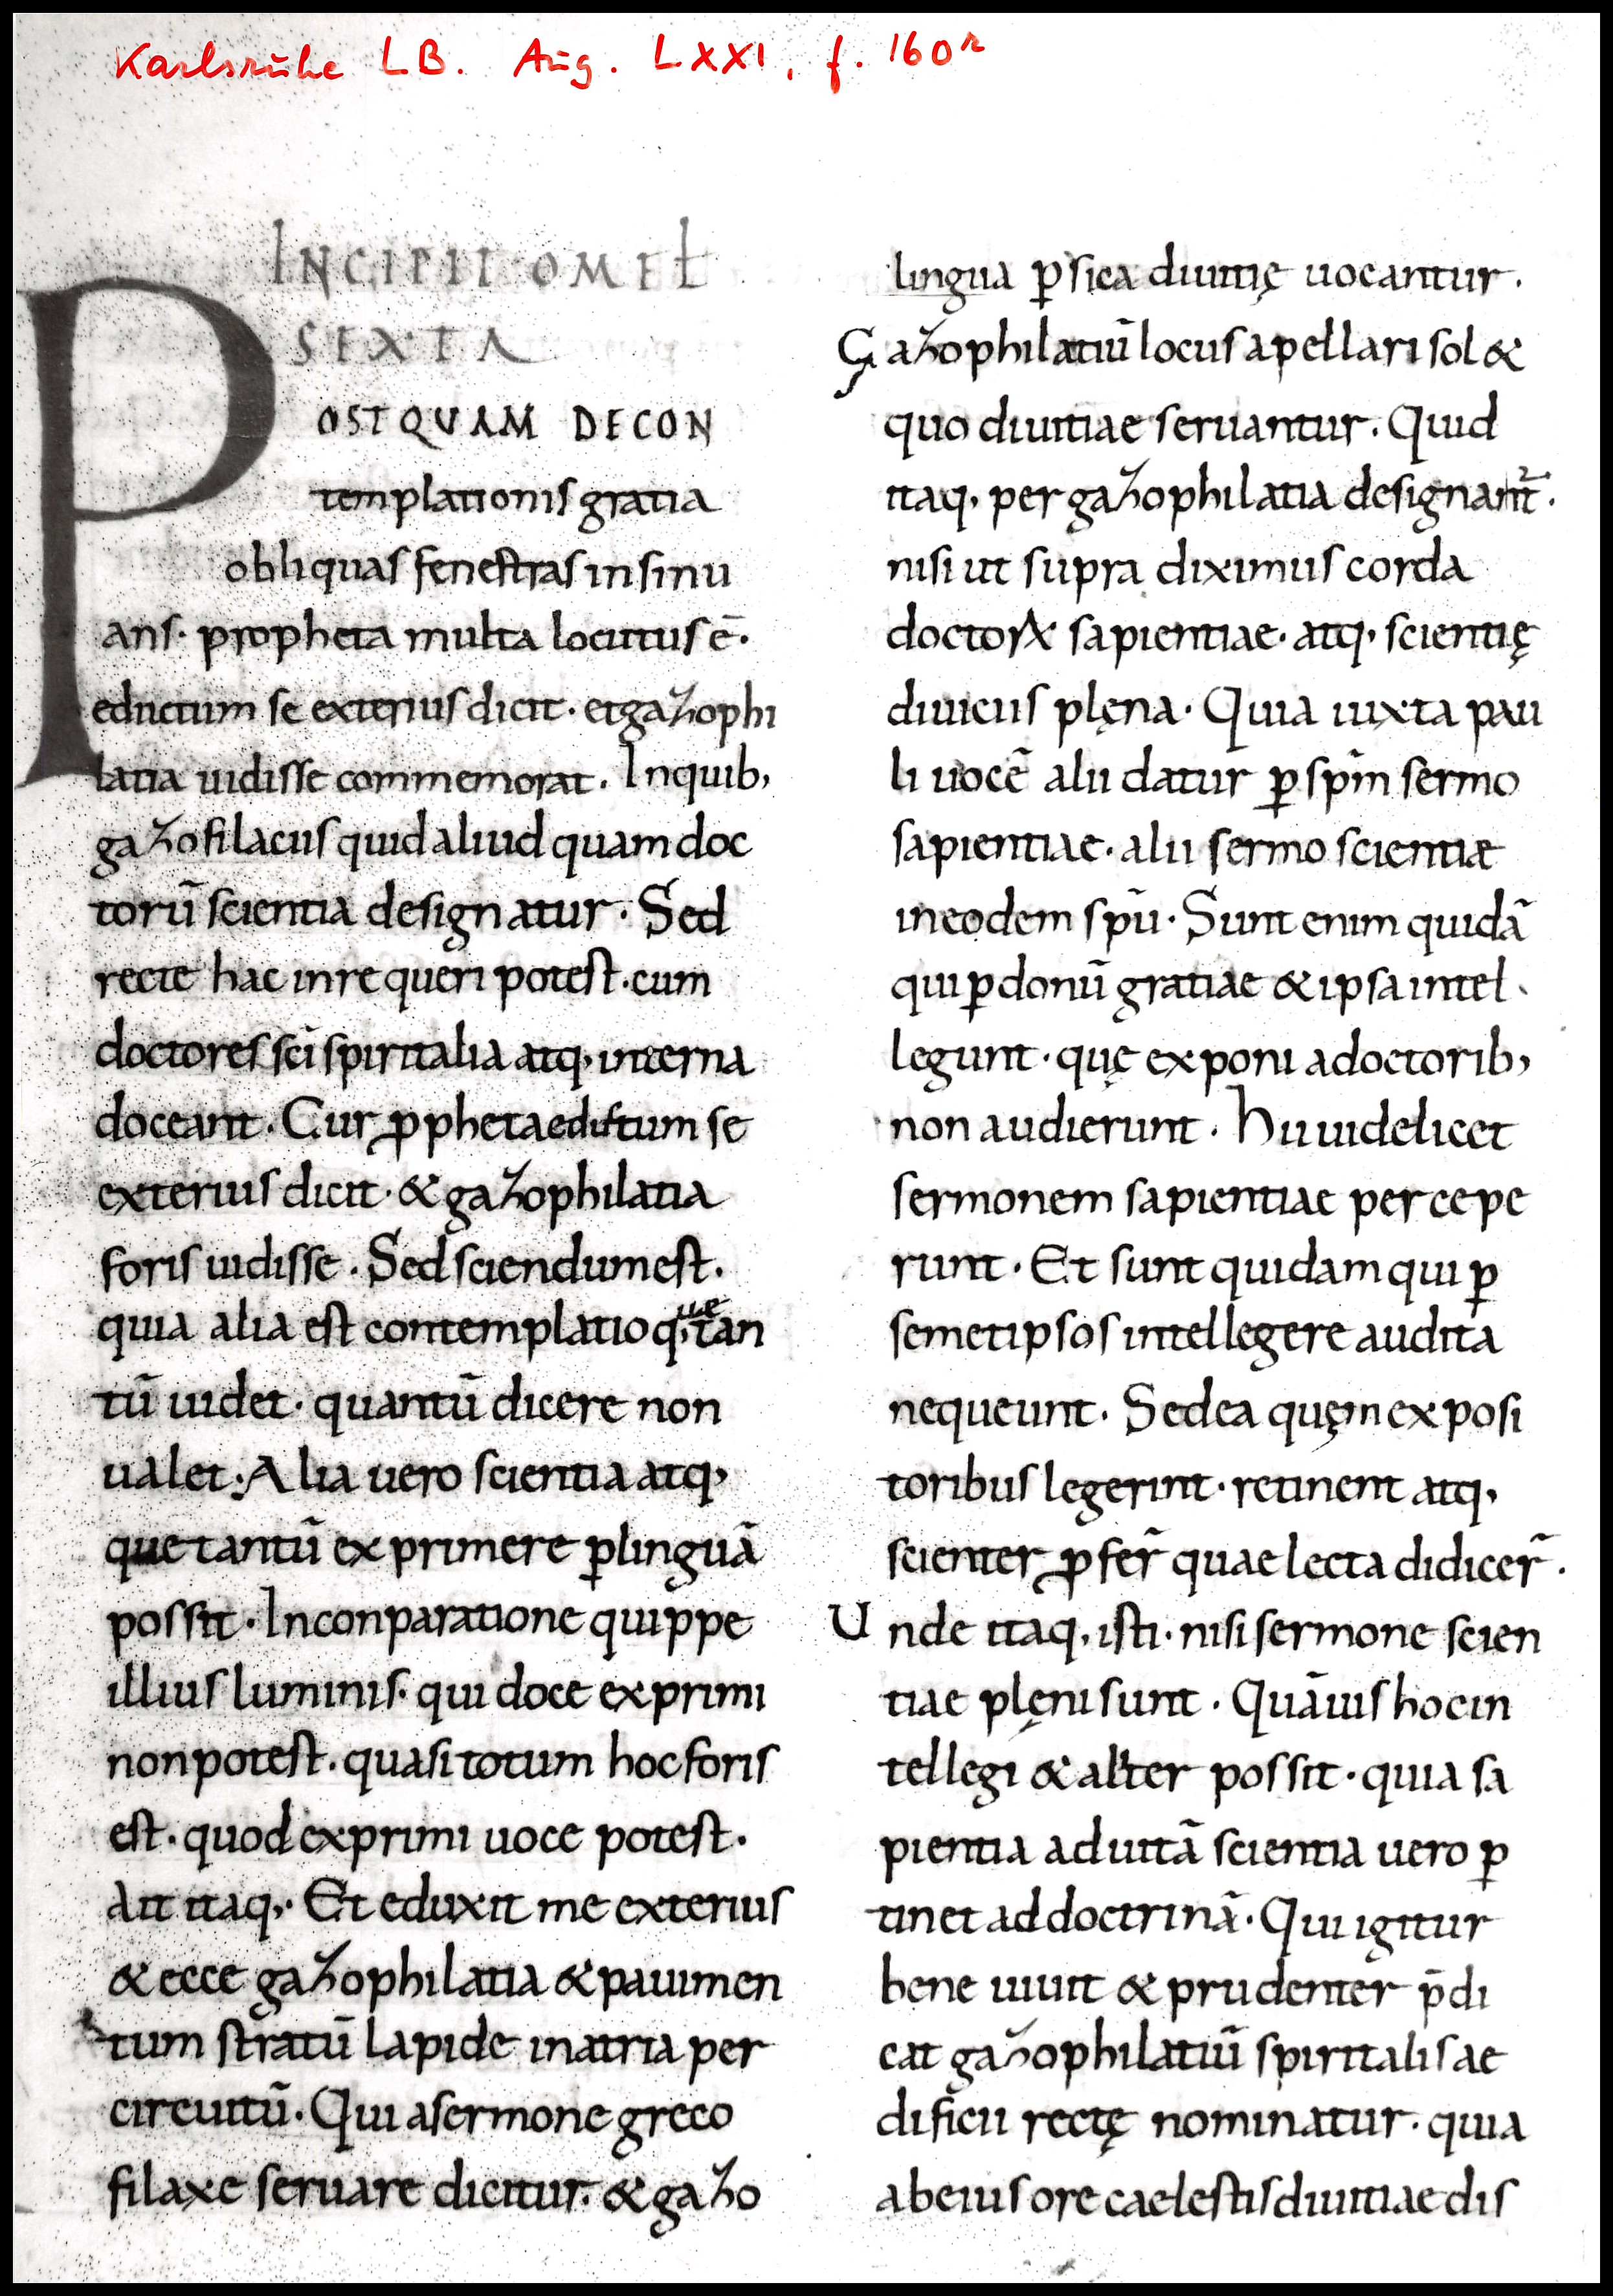 Karlsruhe LB. Aug. LXXI, f. 160r
INCIPIT OMEƚ
SEXTA
POSTQUAM DECON
templationis gratia
obliquas fenestras insinu
ans· propheta multa locutus ē·
eductum se exterius dicit· et gazophi
latia uidisse commemorat. Inquib;
gazofilaciis quid aliud quam doc
torū scientia designatur· Sed
recte hac inre queri potest· cum
doctores sc̄i spiritalia atq; interna
doceant· Cur ꝓpheta eductum se
exterius dicit· & gazophilatia
foris uidisse· Sed sciendum est·
quia alia est contemplatio q;ue tan
tū uidet· quantū dicere non
ualet· Alia uero scientia atq;
que tantū exprimere ꝑlinguā
possit· Inconparatione quippe
illius luminis· qui doce exprimi
non potest· quasi totum hoc foris
est· quod exprimi uoce potest·
Ait itaq;· Et eduxit me exterius
& ecce gazophilatia & pauimen
tum stratū lapide inatria per
circuitū· Qui asermone greco
filaxe seruare dicitur· & gazo
lingua ꝑsica diuitię uocantur·
Gazophilatiū locus apellari sol&
quo diuitiae seruantur· Quid
itaq; per gazophilatia designant᷑·
nisi ut supra diximus corda
doctorꝝ sapientiae· atq; scientię
diuiciis plęna· Quia iuxta pau
li uocē alii datur ꝑ spm̄ sermo
sapientiae· alii sermo scientiæ
ineodem spū· Sunt enim quidā
qui ꝑdonū gratiae & ipsa intel
legunt· quę exponi adoctorib;
non audierunt· Hii uidelicet
sermonem sapientiae percepe
runt· Et sunt quidam qui ꝑ
semetipsos intellegere audita
nequeunt· Sed ea quę in exposi
toribus legerint· retinent atq;
scienter ꝓfer̄ quae lecta didicer̄·
Unde itaq; isti· nisi sermone scien
tiae plęni sunt· Quāuis hoc in
tellegi & alit̄er possit· quia sa
pientia aduitā scientia uero ꝑ
tinet ad doctrinā· Qui igitur
bene uiuit & prudenter p̄di
cat gazophilatiū spiritalis ae
dificii rectę nominatur· quia
abeius ore caelestis diuitiae dis